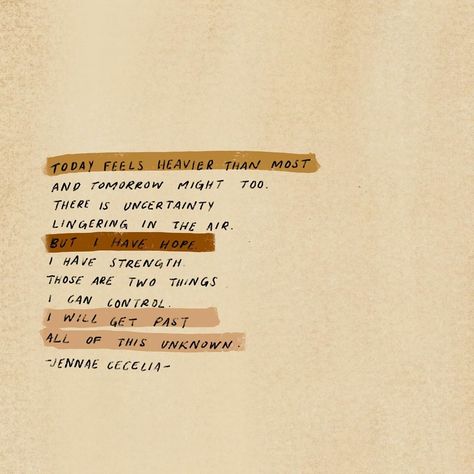 TODAY FEELS HEAVIER THAN MOST
AND TOMORROW MIGHT TOO.
THERE IS UNCERTAINTY
LINGERING IN THE AIR.
BUT I HAVE HOPE
I HAVE STRENGTH.
THOSE ARE TWO THINGS
I CAN CONTROL.
I WILL GET PAST
ALL OF THIS UNKNOWN.
-JENNAE CECELIA-